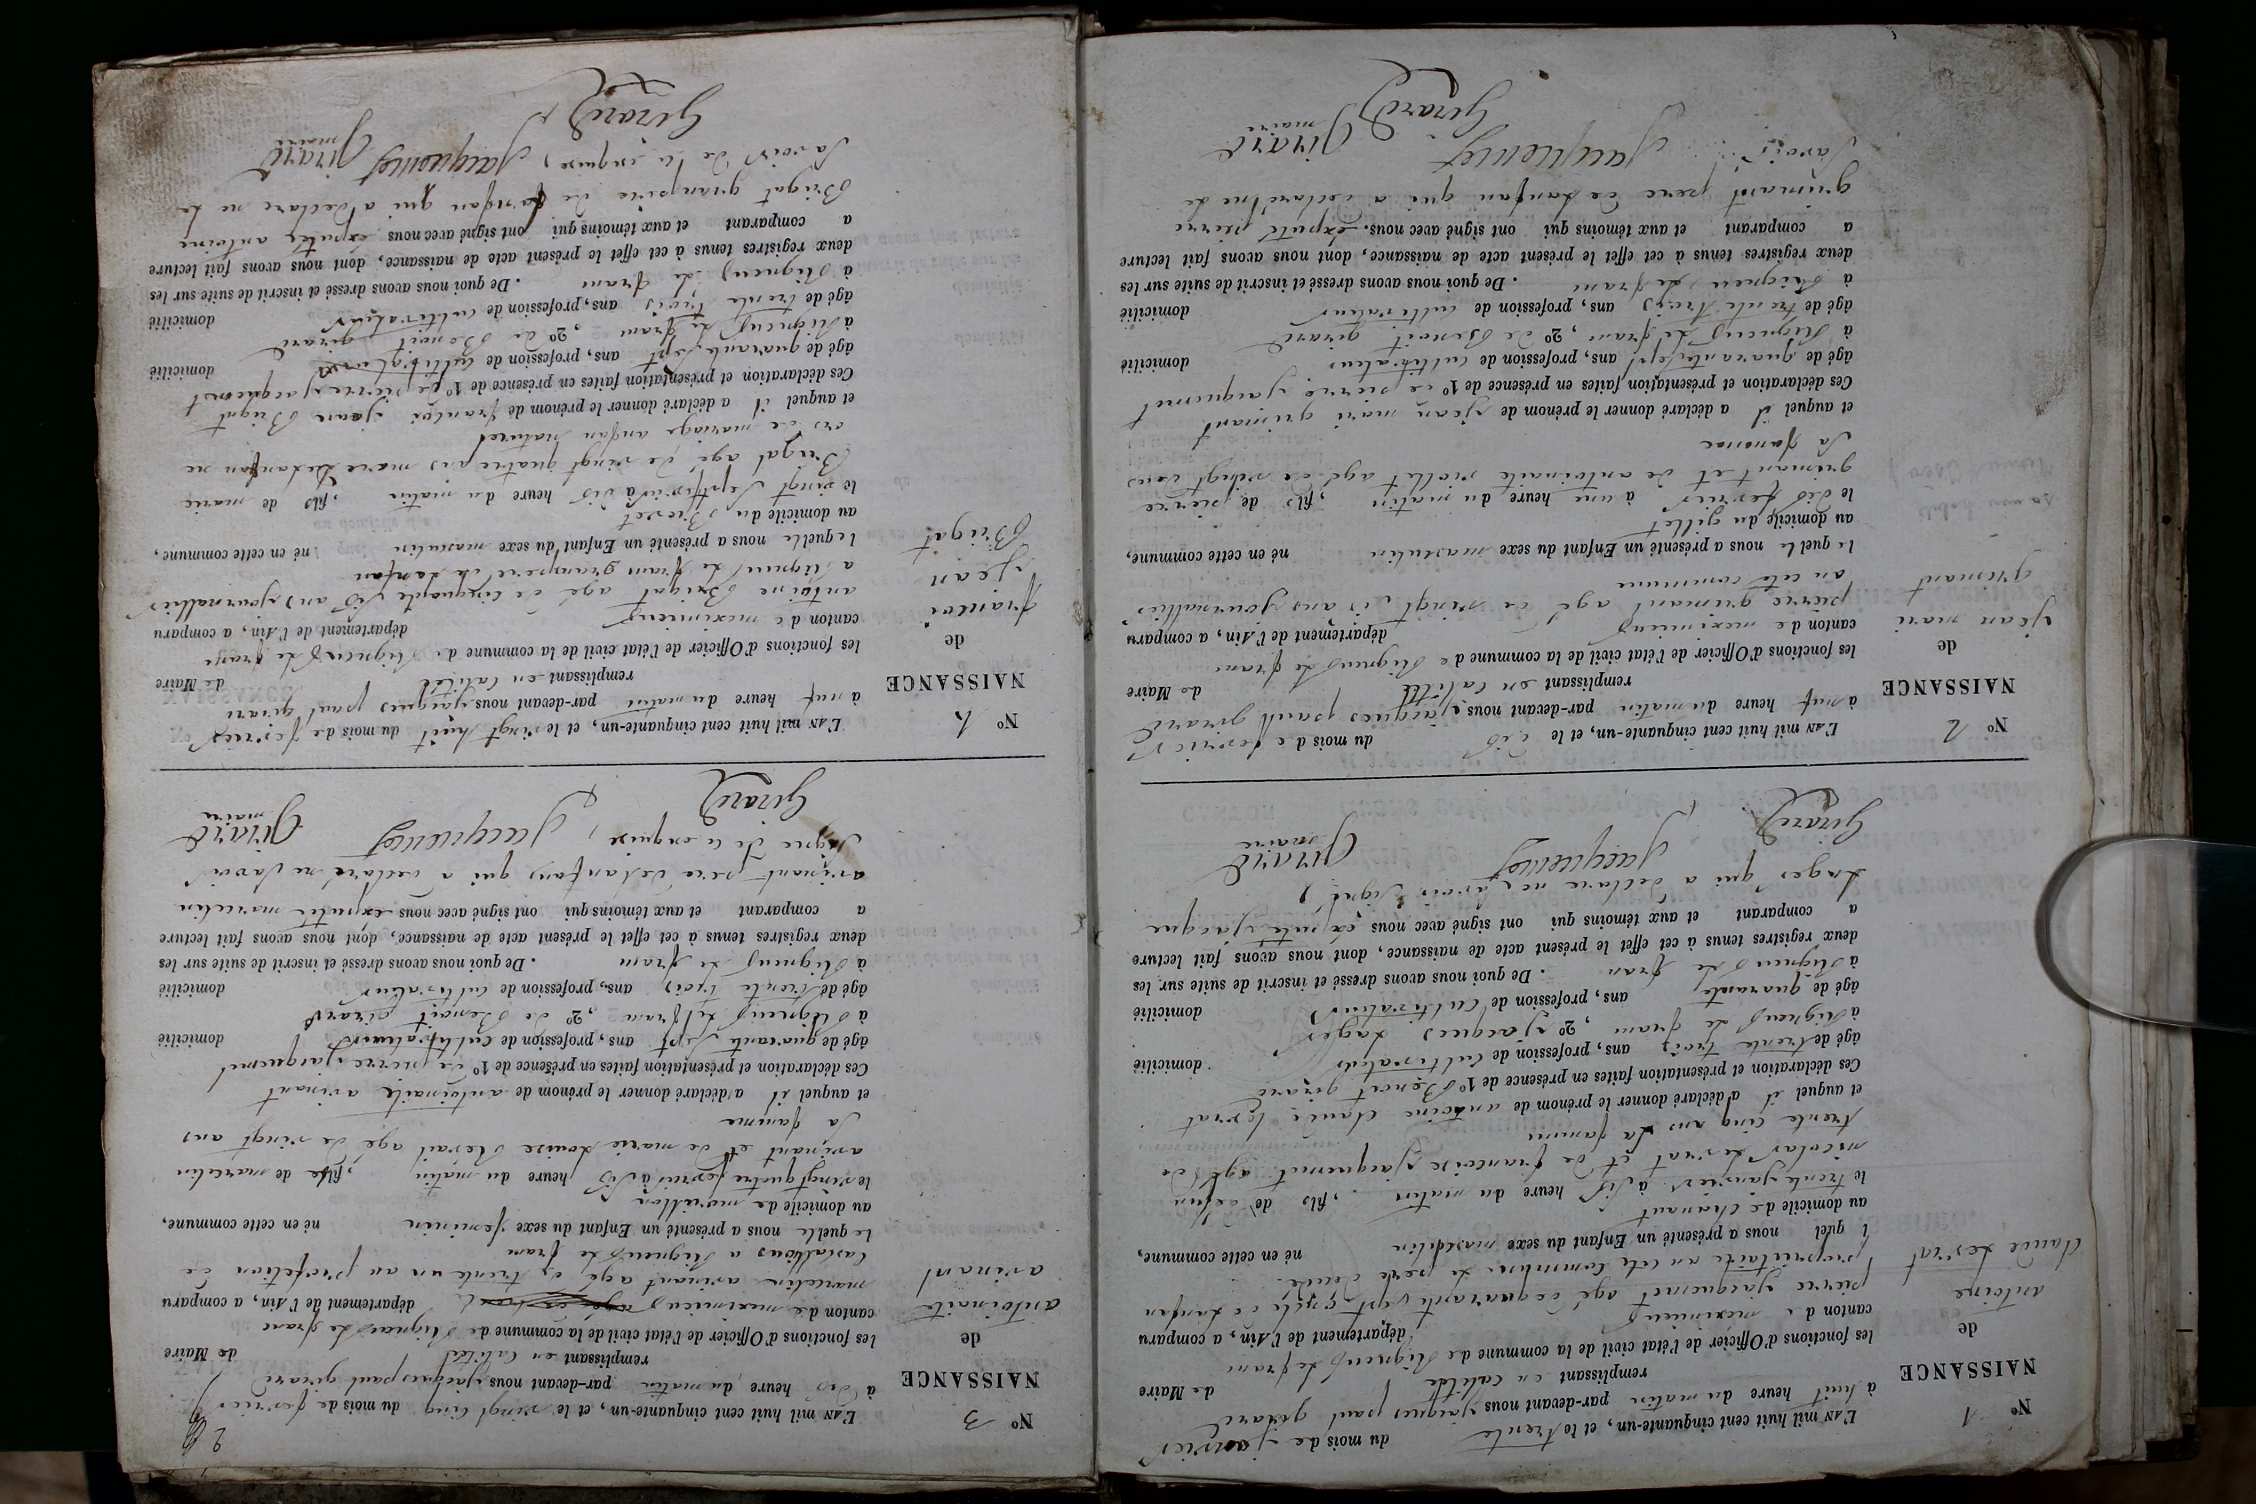 N° 1
NAISSANCE
de
antoine
claude Levrat
L'AN mil huit cent cinquante-un, et le trente du mois de janvier
à huit heure du matin par-devant nous jacques paul girard
remplissant en calité de Maire
les fonctions d'Officier de l'état civil de la commune de Rigneu le franc
canton de meximieu département de l'Ain, a comparu
pierre jacquemet agé de quarante sept
propriétaire an cete commune
lquel nous a présenté un Enfant du sexe né en cette commune,
au domicile de
le trente janvier à heure du matin, fils de
nicolas Levrat et de françoise jacquemet agé de
trente cinq ans sa famme
et auquel il a déclaré donner le prénom de antoine claude Levrat
Ces déclaration et présentation faites en présence de 1° Benoit girard
âgé de trente trois ans, profession de cultivateur domicilié
à Rigneu le franc, 2° jacques
âgé de quarante ans, profession de cultivateur domicilié
à Rigneu le franc. De quoi nous avons dressé et inscrit de suite sur les
deux registres tenus à cet effet le présent acte de naissance, dont nous avons fait lecture
a comparant et aux témoins qui ont signé avec nous exputé jacque
qui a déclaré ne savoir signé
Girard Jacquemet Girard
maire
N° 2
NAISSANCE
de
jean mari
grumant
L'AN mil huit cent cinquante-un, et le dis du mois de fevrier
à nuf heure du matin par-devant nous jacques paul girard
remplissant en calité de Maire
les fonctions d'Officier de l'état civil de la commune de Rigneu le franc
canton de meximieu département de l'Ain, a comparu
pierre grumant agé de vingt sis ans journallier
an cete commune
lequel nous a présenté un Enfant du sexe masculin né en cette commune,
au domicile du gillet
le dis fevrier à une heure du matin, fils de pierre
grumant et de antoinaite violet agé de vingt
sa famme
et auquel il a déclaré donner le prénom de jean mari grumant
Ces déclaration et présentation faites en présence de 1° de pierre jacquemet
âgé de quarante sept ans, profession de cultivateur domicilié
à Rigneu le franc, 2° de Benoit girard
âgé de trente trois ans, profession de cultivateur domicilié
à Rigneu le franc. De quoi nous avons dressé et inscrit de suite sur les
deux registres tenus à cet effet le présent acte de naissance, dont nous avons fait lecture
a comparant et aux témoins qui ont signé avec nous. exputé pierre
grumant pere de lanfan qui a declaré ne le
savoir Jacquemet Girard
maire
Girard
2
N° 3
NAISSANCE
de
antoinaite
avinant
L'AN mil huit cent cinquante-un, et le vingt cinq du mois de fevrier
à dis heure du matin par-devant nous jacques paul girard
remplissant en calité de Maire
les fonctions d'Officier de l'état civil de la commune de Rigneu le franc
canton de meximieu département de l'Ain, a comparu
marcelin avinant agé de trente un an profetion de
a Rigneu le franc
lequelle nous a présenté un Enfant du sexe feminin né en cette commune,
au domicile de
le vingt quatre fevrier à dis heure du matin, fille de marcelin
avinant et de marie louise agé de vingt ans
sa famme
et auquel il a déclaré donner le prénom de antoinaite avinant
Ces déclaration et présentation faites en présence de 1° de pierre jacquemet
âgé de quarante sept ans, profession de cultivateur domicilié
à Rigneu le franc, 2° de Benoit girard
âgé de trente trois ans, profession de cultivateur domicilié
à Rigneu le franc. De quoi nous avons dressé et inscrit de suite sur les
deux registres tenus à cet effet le présent acte de naissance, dont nous avons fait lecture
a comparant et aux témoins qui ont signé avec nous exputé marcelin
avinant pere de lanfan qui a declaré ne savoir
signe de ce enquise, Jacquemet Girard
maire
Girard
N° 4
NAISSANCE
de
françoi
jean
Brigat
L'AN mil huit cent cinquante-un, et le vingt huit du mois de fevrier
à nuf heure du matin par-devant nous jacques paul girard
remplissant en calité de Maire
les fonctions d'Officier de l'état civil de la commune de Rigneu le franc
canton de meximieu département de l'Ain, a comparu
antoine Brigat agé de cinquante sis ans journallier
a Rigneu le franc granpere de lanfan
lequelle nous a présenté un Enfant du sexe masculin né en cette commune,
au domicile du
le vingt sept fevrier à dis heure du matin, fils de marie
Brigat agé de vingt quatre ans mare de lanfan ne
ors de mariage anfan naturel
et auquel il a déclaré donner le prénom de françoi jean Brigat
Ces déclaration et présentation faites en présence de 1° de pierre jacquemet
âgé de quarante sept ans, profession de cultivateur domicilié
à Rigneu le franc, 2° de Benoit girard
âgé de trente trois ans, profession de cultivateur domicilié
à Rigneu le franc. De quoi nous avons dressé et inscrit de suite sur les
deux registres tenus à cet effet le présent acte de naissance, dont nous avons fait lecture
a comparant et aux témoins qui ont signé avec nous exputé antoine
Brigat granpere de lanfan qui a declare ne le
savoir de ce enquise, Jacquemet Girard
maire
Girard